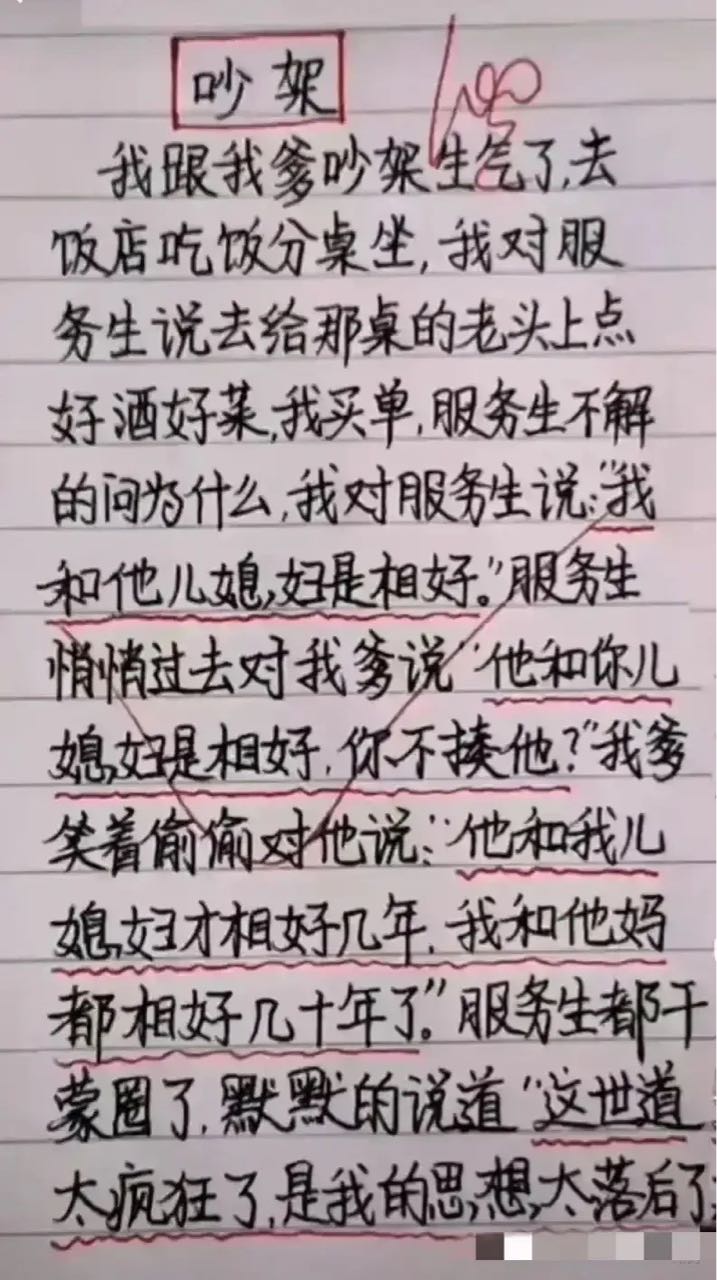 吵架
我跟我爹吵架生气了,去
饭店吃饭分桌坐,我对服
务生说去给那桌的老头上点
好酒好菜,我买单,服务生不解
的问为什么,我对服务生说:"我
和他儿媳妇是相好。"服务生
悄悄过去对我爹说"他和你儿
媳妇是相好,你不揍他?"我爹
笑着偷偷对他说:"他和我儿
媳妇才相好几年,我和他妈
都相好几十年了。"服务生都干
蒙圈了,默默的说道"这世道
太疯狂了,是我的思想太落后了